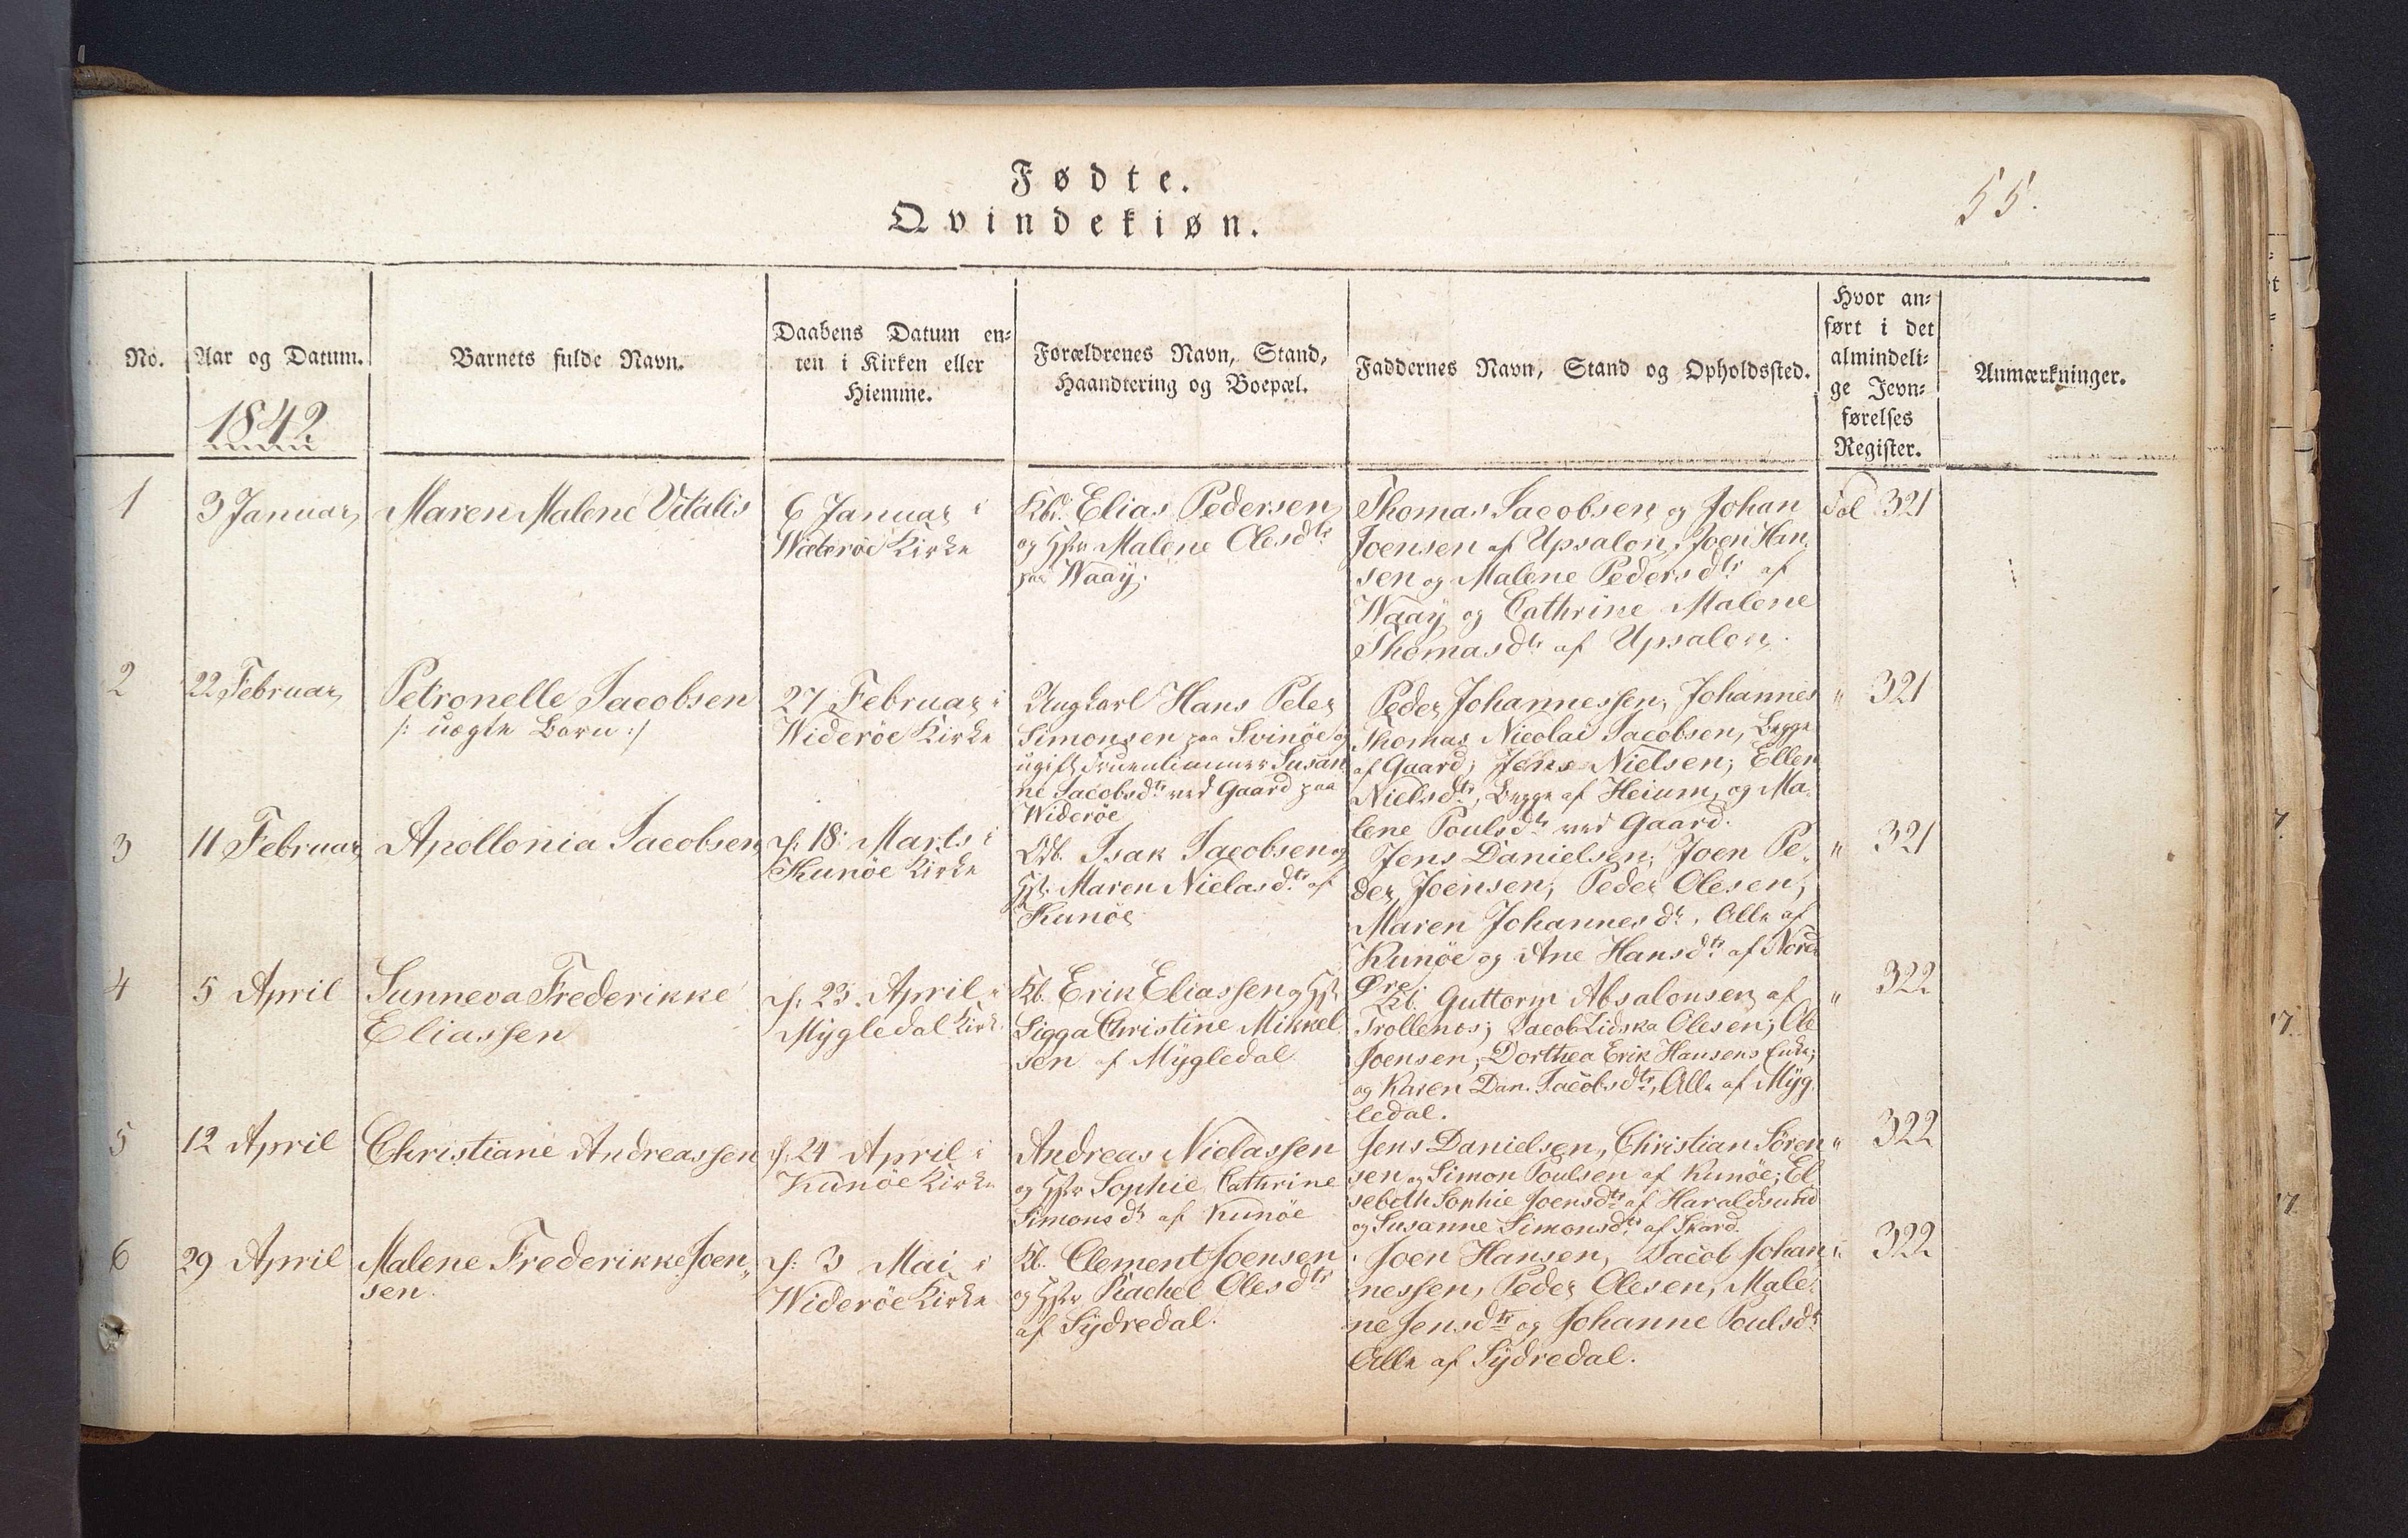 Fødte.
Qvindekiøn.
55.
No.
Aar og Datum.
1842
Barnets fulde Navn.
Daabens Datum en-
ten i Kirken eller
Hiemme.
Forældrenes Navn, Stand,
Haandtering og Boepæl.
Faddernes Navn, Stand og Opholdssted.
Hvor an-
ført i det
almindeli-
ge Jevn-
førelses
Register.
Anmærkninger.
1
3 Januar
Maren Malene Vitalis
6 Januar i
Wiberøe Kirke
Kb. Elias Pedersen
og Hstr Malene Olesdtr
paa Waaÿ.
Thomas Jacobsen og Johan
Joensen af Upsalon, Joen Han-
sen og Malene Pedersdtr af
Waaÿ og Cathrine Malene
Thomasdtr af Upsalon.
Fol 321
2
22 Februar
Petronelle Jacobsen
/: uægte Barn :/
27 Februar i
Widerøe Kirke
Ungkarl Hans Peter
Simonsen paa Svinøe og
ugift Fruentimmer Susan
ne Jacobsdtr ved Gaard paa
Widerøe
Peder Johannessen, Johannes
Thomas Nicolai Jacobsen, Begge
af Gaard; Jens Nielsen; Ellen
Nielsdtr, Begge af Heium, og Ma-
lene Poulsdtr ved Gaard.
" 321
3
11 Februar
Apollonia Jacobsen
f: 18: Marts i
Kunøe Kirke
Odb. Isak Jacobsen og
Hst. Maren Nielasdtr af
Kunøe
Jens Danielsen; Joen Pe-
der Joensen; Peder Olesen;
Maren Johannesdtr, Alle af
Kunøe og Ane Hansdtr af Nord
Øre
" 321
4
5 April
Sunneva Frederikke
Eliassen
f: 23. April i
Mÿgledal Kirke
Kb. Erik Eliassen og Hst
Sigga Christine Mikkel
sen af Mÿgledal
Kb. Guttorm Absalonsen af
Trollenes; Jacob Zidska Olesen; Ole
Joensen; Dorthea Erik Hansens Enke;
og Karen Dan. Jacobsdtr, Alle af Mÿg
ledal.
" 322
5
12 April
Christiane Andreassen
f: 24 April i
Kunöe Kirke
Andreas Nielassen
og Hstr Sophie Cathrine
Simonsdtr af Kunöe
Jens Danielsen, Christian Sören
sen og Simon Poulsen af Kunöe; El
sebeth Sophie Joensdtr af Haraldsund
og Susanne Simonsdtr af Skard.
" 322
6
29 April
Malene Frederikke Joen-
sen.
f: 3 Mai i
Widerøe Kirke
Kb. Clement Joensen
og Hstr Rachel Olesdtr
af Sÿdredal.
Joen Hansen, Jacob Johan
nessen, Peder Olesen, Male-
ne Jensdtr og Johanne Poulsdtr
Alle af Sÿdredal.
" 322